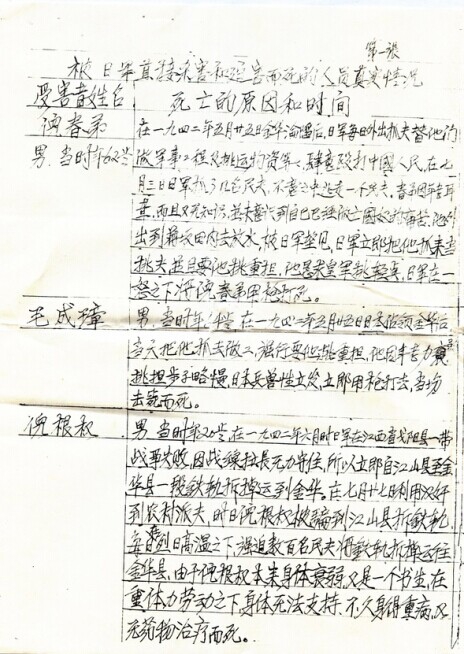 第一张
被日军直接杀害和迫害而死的人员真实情况
受害者姓名 死亡的原因和时间
倪春弟 在一九四二年五月廿五日金华沦陷后,日军每日外出抓夫替他们
男,当时年62岁 做军事工程及挑运物资等,肆意殴打中国人民,在七
月三日日军抓了几名民夫,不意之中逃走一个民夫,春弟因年老耳
聋,而且又无知识,并未意识到自己已经做亡国奴的痛苦,他外
出到 田内去放水,被日军望见,日军立即把他抓来当
挑夫,并且要他挑重担,他 日军在一
怒之下将倪春弟用枪打死。
毛成璋 男,当时年 岁,在一九四二年五月廿五日日寇占领金华后,
当天把他抓去做工,强行要他挑重担,他因年老力衰,
挑担步子略慢,日本兵兽性立发,立即用枪打去,当场
去 而死。
倪根叔 男,当时年20岁,在一九四二年六月时日军在江西省弋阳县一带
战事失败,因战线拉长无力守住,所以立即自江山县至金
华县一段铁轨拆掉运到金华,在七月廿七日利用汉奸
到农村派夫,时日倪根叔被骗到江山县拆铁轨,
每日烈日高温之下,强迫数百名民夫将铁轨拆掉运往
金华县,由于倪根叔本来身体衰弱,又是一个书生,在
重体力劳动之下身体无法支持,不久身得重病,又
无药物治疗而死。